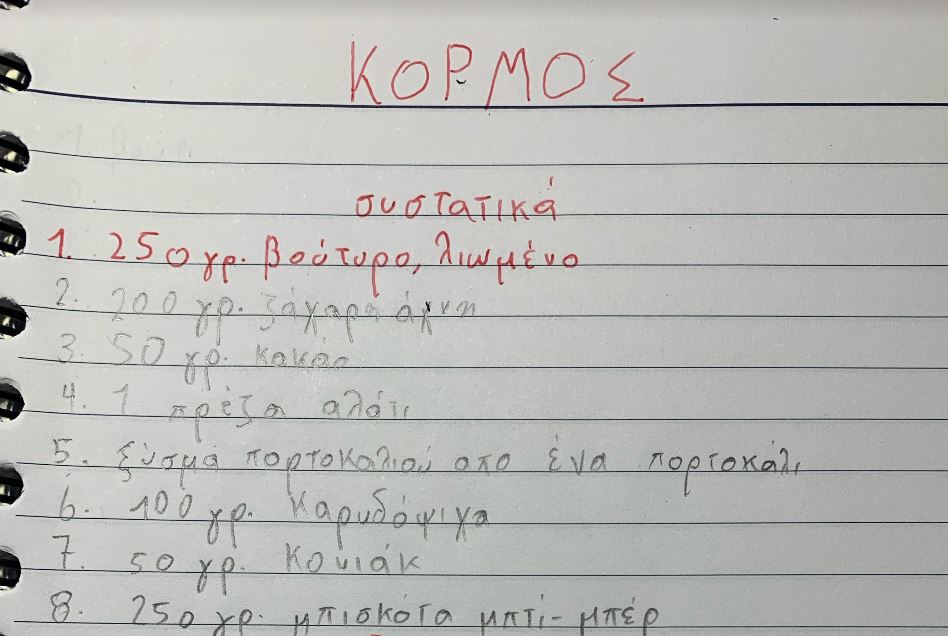 ΚΟΡΜΟΣ
συστατικά
1. 250 γρ. βούτυρο, λιωμένο
2. 200 γρ. ζάχαρη άχνη
3. 50 γρ. κακάο
4. 1 πρέζα αλάτι
5. ξύσμα πορτοκαλιού απο ένα πορτοκάλι
6. 100 γρ. καρυδόψιχα
7. 50 γρ. κονιάκ
8. 250 γρ. μπισκότα μπτί-μπέρ